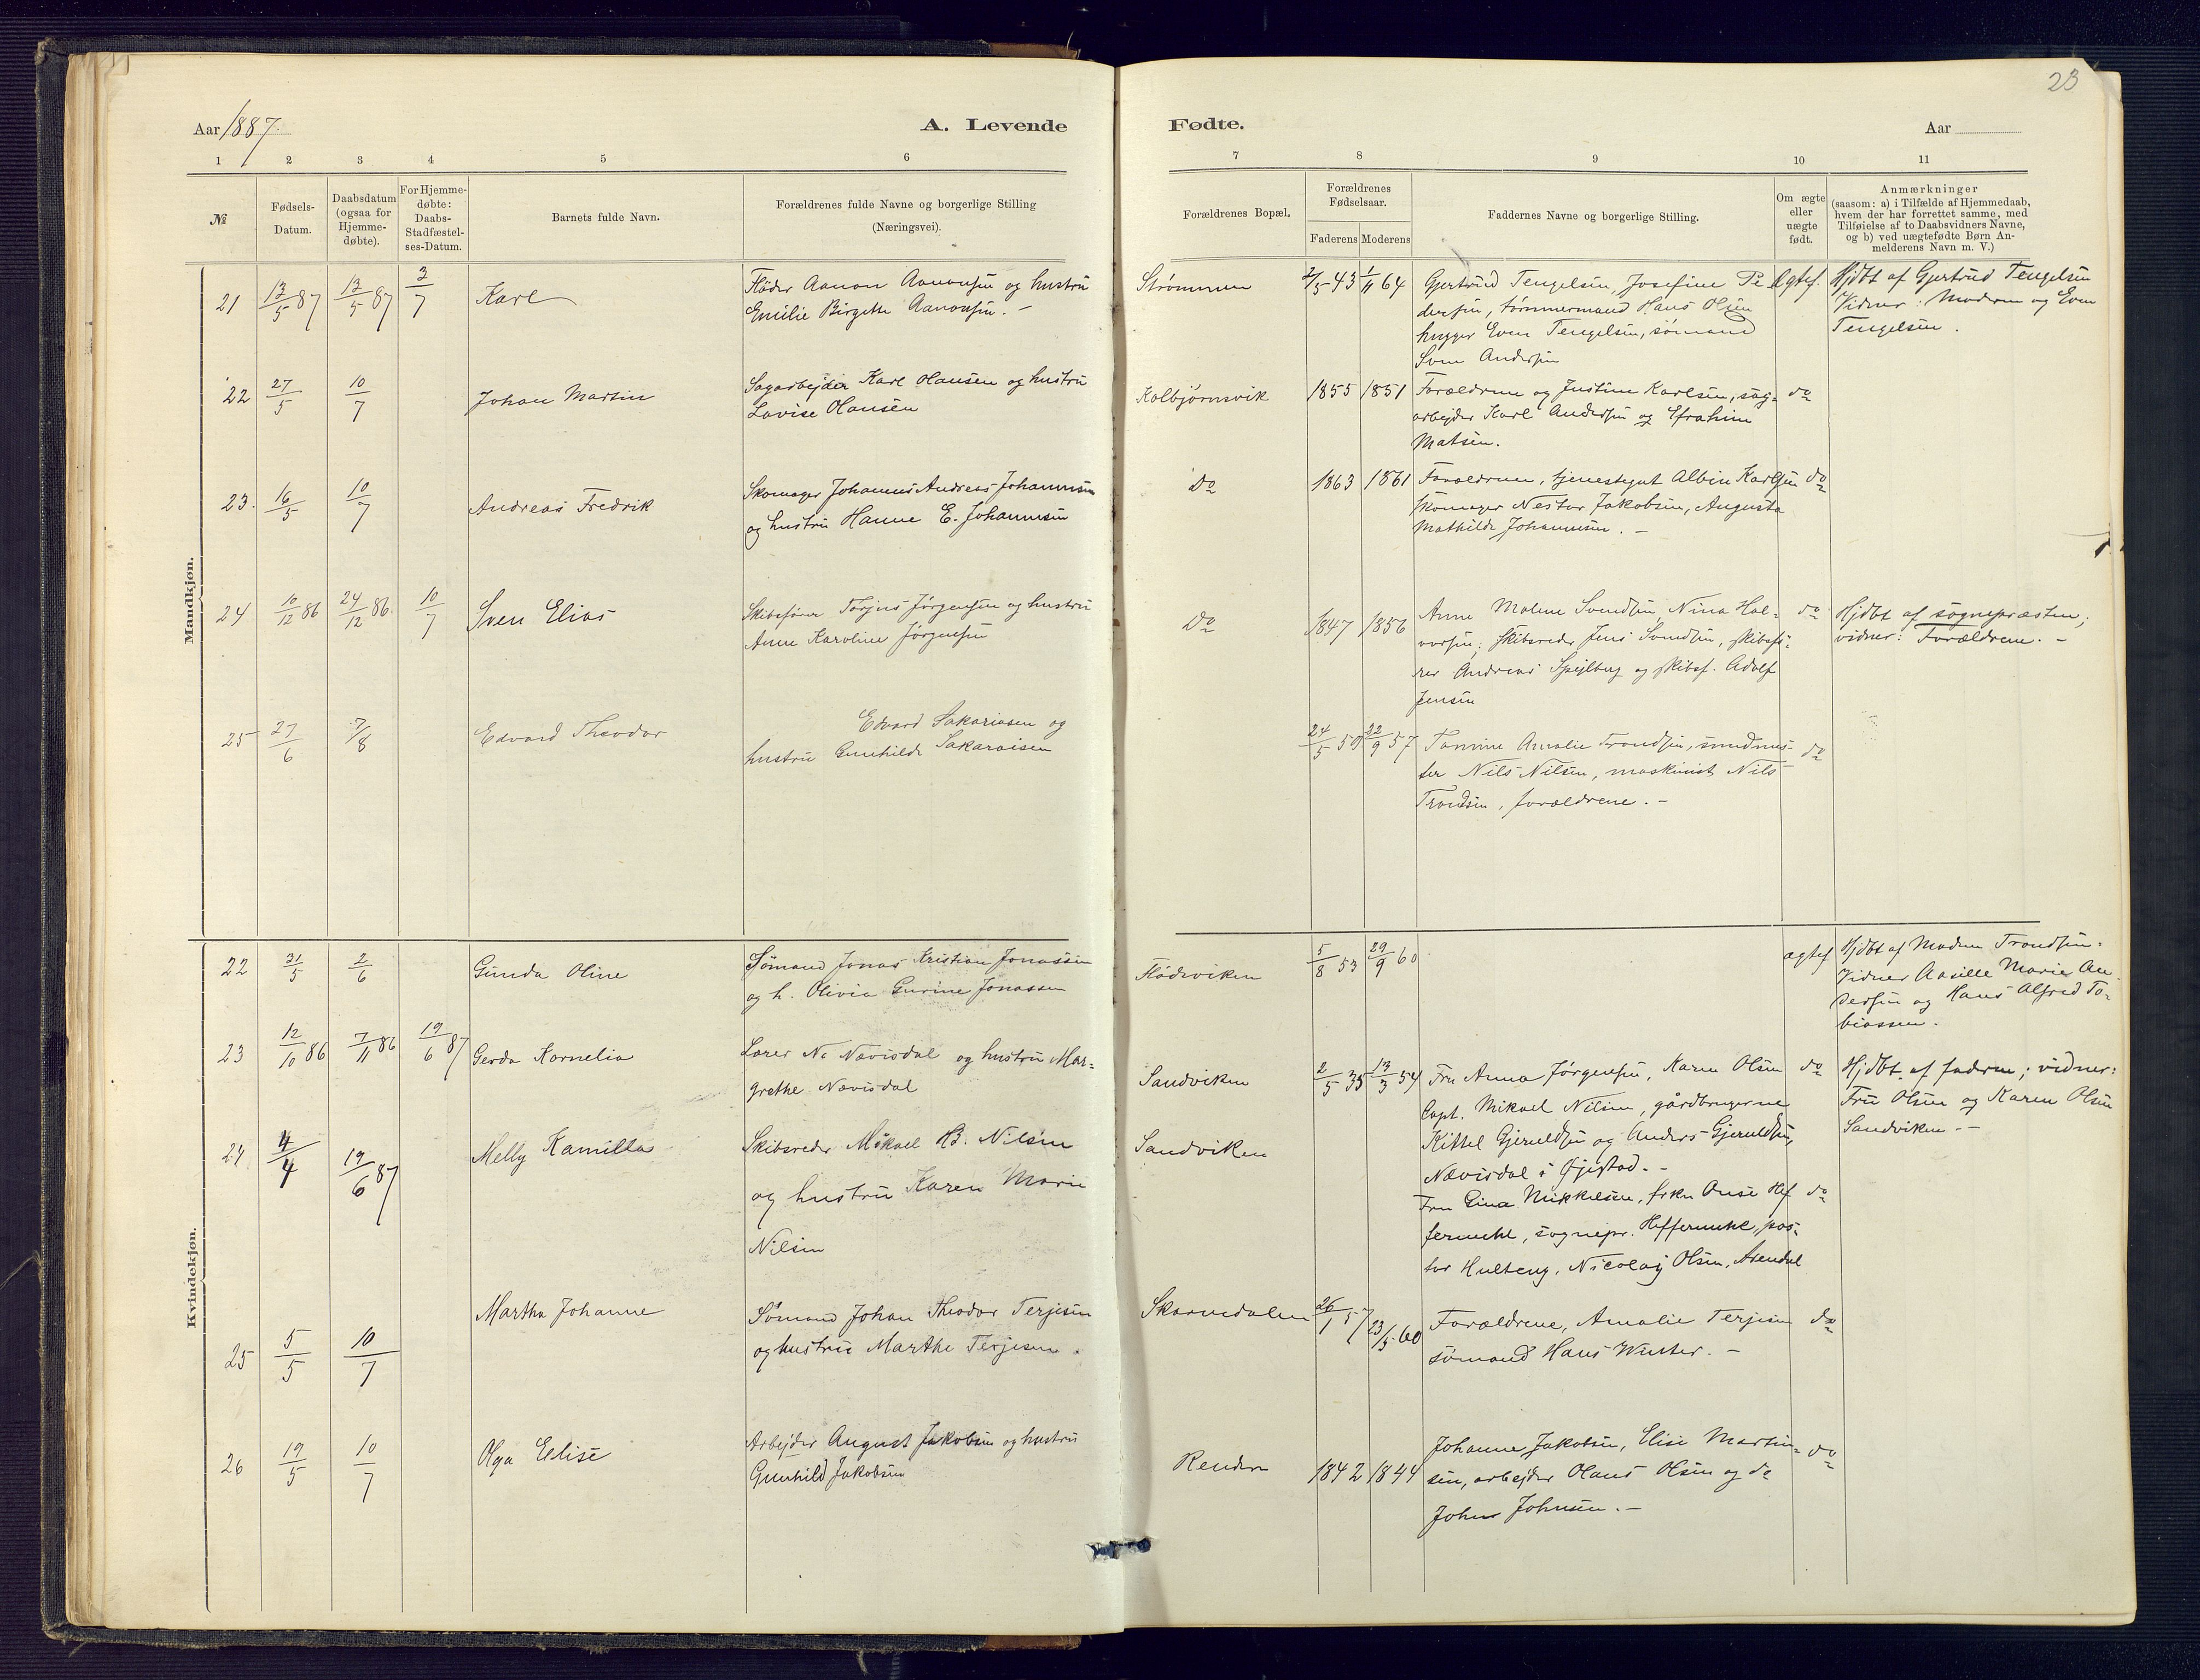 23
Aar 1887.
A. Levende
Fødte.
Aar
1 2 3 4 5 6
7 8 9 10 11
№
Fødsels-
Datum.
Daabsdatum
(ogsaa for
Hjemme-
døbte).
For Hjemme-
døbte:
Daabs-
Stadfæstel-
ses-Datum.
Barnets fulde Navn.
Forældrenes fulde Navne og borgerlige Stilling
(Næringsvei).
Forældrenes Bopæl.
Forældrenes
Fødselsaar.
Faderens Moderens
Faddernes Navne og borgerlige Stilling.
Om ægte
eller
uægte
født.
Anmærkninger
(saasom: a) i Tilfælde af Hjemmedaab,
hvem der har forrettet samme, med
Tilføielse af to Daabsvidners Navne,
og b) ved uægtefødte Børn An-
melderens Navn m. V.)
Mandkjøn.
21 13/5 87 13/5 87 3/7 Karl
Aanon Aanonsen og hustru
Emilie Birgitte Aanonsen. -
Strømmen 2/5 43 1/11 64
Gjertrud Tengelsen, Josefine Pe-
dersen, tømmermand Hans Olsen
Even Tengelsen, sømand
Sven Andersen
Ægtef.
Hjdbt af Gjertrud Tengelsen
Vidner: Moderen og Even
Tengelsen.
22 27/5 10/7 Johan Martin
Sagarbejder Karl Hansen og hustru
Lovise Hansen
Kolbjørnsvik 1855 1851
Forældrene og Justine Karlsen, sag-
arbejder Karl Andersen og Efraim
Matsen.
do
23. 16/5 10/7 Andreas Fredrik
Skomager Johannes Andreas Johannesen
og hustru Hanne E. Johannesen
do 1863 1861
Forældrene, tjenestegut Albin Karlsen
skomager Nestor Jakobsen, Augusta
Mathilde Johannesen. -
do
24 10/12 86 24/12 86. 10/7 Sven Elias
Skibsfører Terjus Jørgensen og hustru
Anne Karoline Jørgensen
do 1847 1856
Anne Malene Svendsen, Nina Hal-
vorsen; skibsreder Jens Svendsen, skibsfø-
rer Andreas Spejlberg og skibsf. Adolf
Jensen
do
Hjdbt af sognepræsten;
vidner: Forældrene. -
25 27/6 7/8 Edvard Theodor
Edvard Sakariasen og
hustru Gunhilde Sakaraisen
24/5 59 22/9 57
Tomine Amalie Trondsen, smedmes-
ter Nils Nilsen, maskinist Nils
Trondsen, forældrene. -
do
Kvindekjøn.
22 31/5 2/6 Gunda Oline
Sømand Jonas Kristian Jonassen
og h. Olivia Gurine Jonassen
Flødeviken 5/8 53 29/9 60
ægtef
Hjdbt af Madam Trondsen.
Vidner Aasille Marie An-
dersen og Hans Alfred To-
biassen.
23 12/10 86 7/11 86 19/6 87 Gerda Kornelia
Lærer N. Nævisdal og hustru Mar-
grethe Nævisdal
Sandviken 2/5 35 13/3 54
Fru Anna Jørgensen, Karen Olsen
Capt. Mikael Nilsen, gårdbrugerne
Kittel Gjeruldsen og Anders Gjeruldsen,
Nævisdal i Øjestad. -
do
Hjdbt. af faderen; vidner:
Fru Olsen og Karen Olsen
Sandviken -
24 4/4 19/6 87 Melly Kamilla
Skibsreder Mikael B. Nilsen
og hustru Karen Marie
Nilsen
Sandviken
Fru Gina Mikkelsen, frkn Anse Hef
fermehl, sognepr. Heffermehl, pas-
tor Hulteng, Nicolay Olsen, Arendal
do
25 5/5 10/7 Martha Johanne
Sømand Johan Theodor Terjesen
og hustru Marthe Terjesen.
Skarvedalen 26/1 57 23/5 60
Forældrene, Amalie Terjesen
sømand Hans Winter. -
do
26 19/5 10/7 Olga Eelise
Arbejder August Jakobsen og hustru
Gunhild Jakobsen
Renderen 1842 1844
Johanne Jakobsen, Elise Martin-
sen, arbejder Olaus Olsen og do
Johns Johnsen. -
do